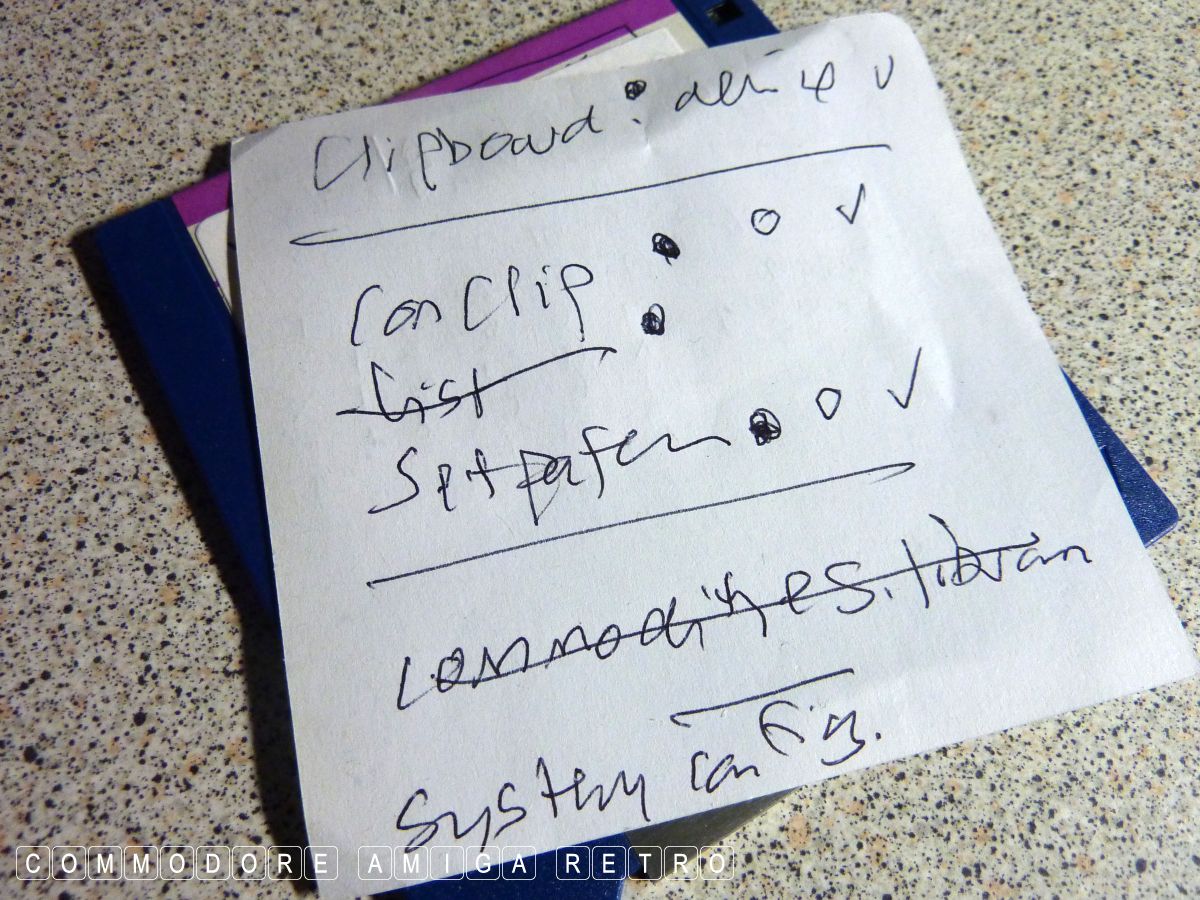 Clipboard. device ✓
ConClip ● ○ ✓
List ●
Setpatch ● ○ ✓
commodities.library
System config.
COMMODORE AMIGA RETRO